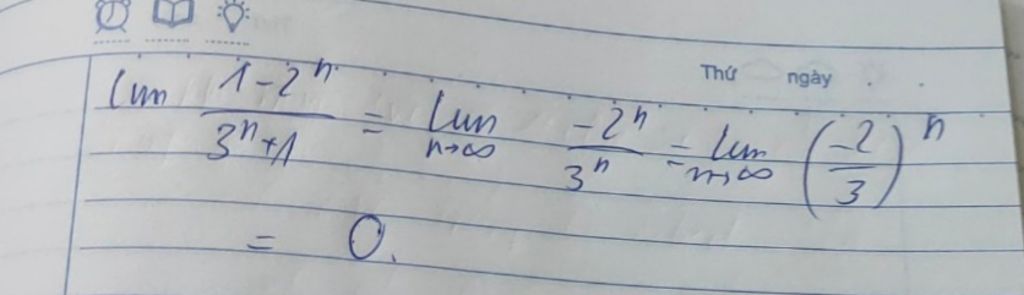 Thứ ngày
lim \frac{1-2^n}{3^n+1} = lim_{n→∞} \frac{-2^n}{3^n} = lim_{n→∞} \left(\frac{-2}{3}\right)^n
= 0.